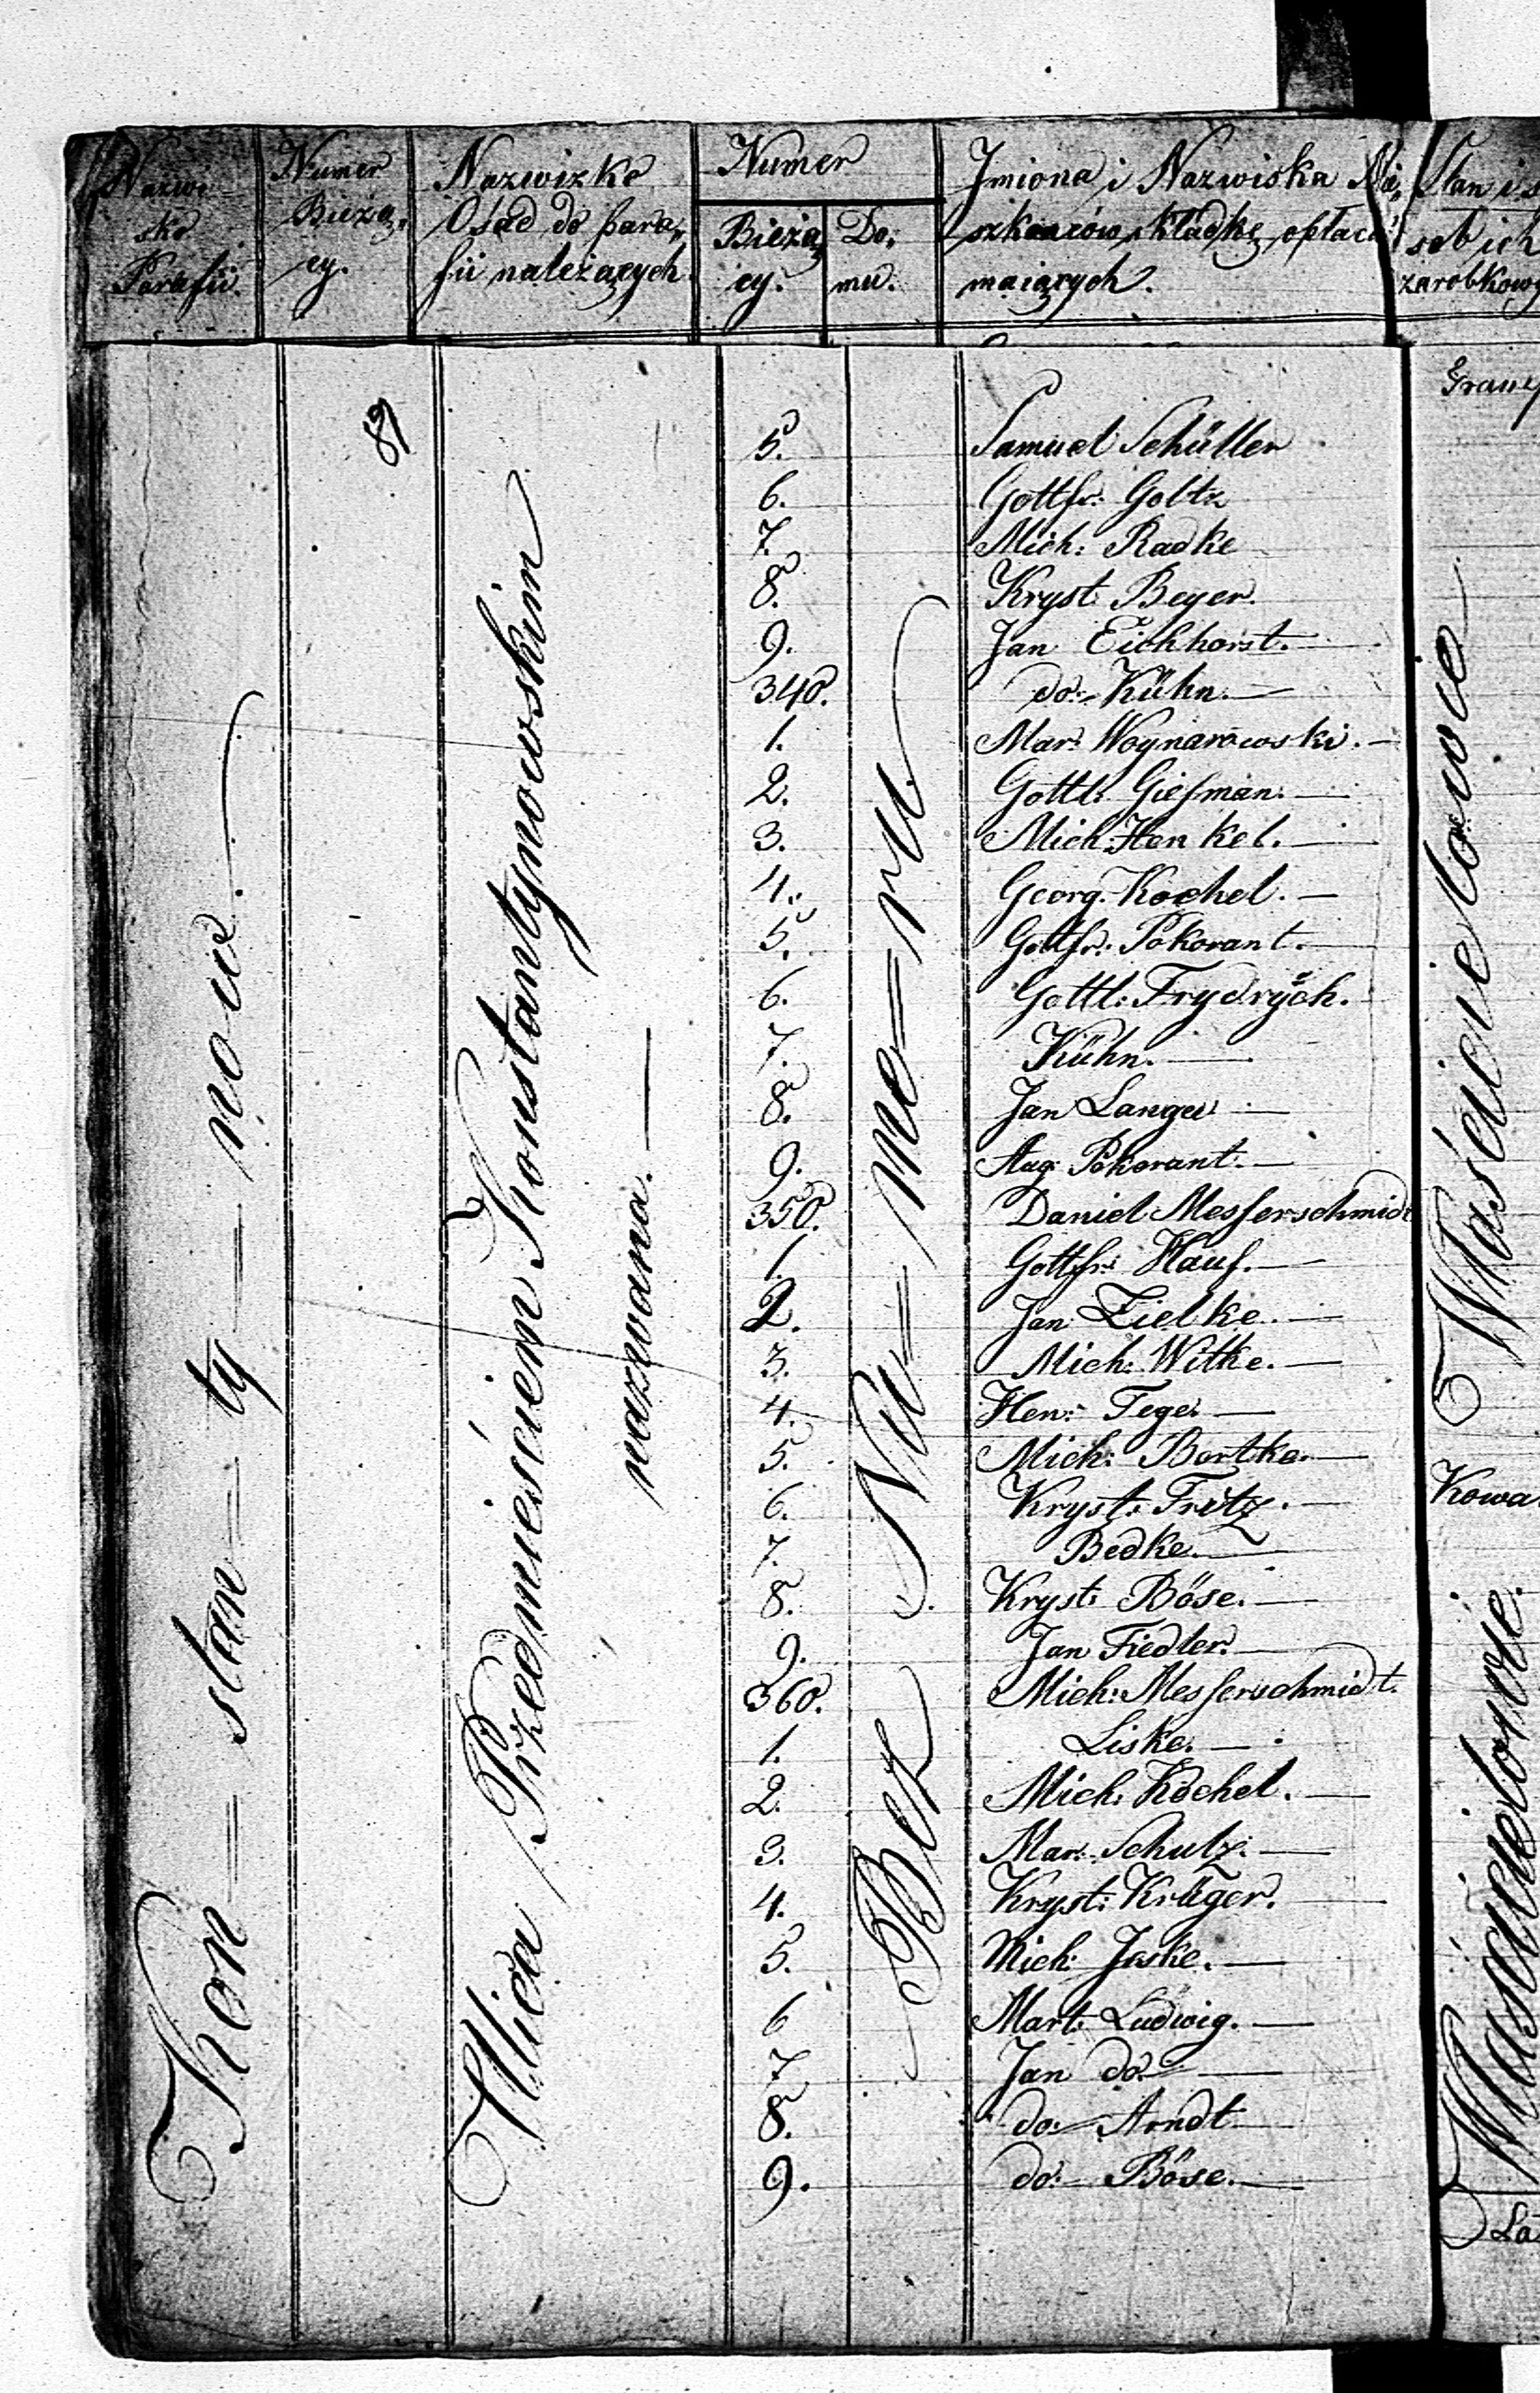 Nazwi-
sko
Parafii.
Numer
Bieżą-
cy.
Nazwizko
Osad do para-
fii należących
Numer
Bieżą-
cy.
Do-
mu.
Jmiona i Nazwiska Mie-
szkańców składkę opłacać
maiących.
Stan i s
sob ich
zarobkowy
Kon = stan = ty = now.
Ulica Przedmieściem Konstantynowskim
nazwana.
Bez Nu = me = ru
5. Samuel Schüller
6. Gottfr: Goltz
7. Mich: Radke
8. Kryst: Beyer.
9. Jan Eichhorst.
340. do: Kühn.
1. Mar: Woynarowski.
2. Gottl: Giesman.
3. Mich: Henkel.
4. Georg. Kochel.
5. Gottfr: Pokorant.
6. Gottl: Frydrych.
7. Kühn.
8. Jan Langer
9. Aug: Pokorant.
350. Daniel Messerschmidt
1. Gottfr: Hauf.
2. Jan Zielke.
3. Mich: Witke.
4. Hen: Tege.
5. Mich: Bartke.
6. Kryst: Fritz.
7. Bedke.
8. Kryst: Böse.
9. Jan Fiedler.
360. Mich: Messerschmidt.
1. Liske.
2. Mich: Kochel.
3. Mar: Schulz.
4. Kryst: Krüger.
5. Mich: Jaske.
6 Mart: Ludwig.
7 Jan do.
8. do: Arndt
9. do: Böse.
Właściciełowie
Kowa
Właściciełowie.